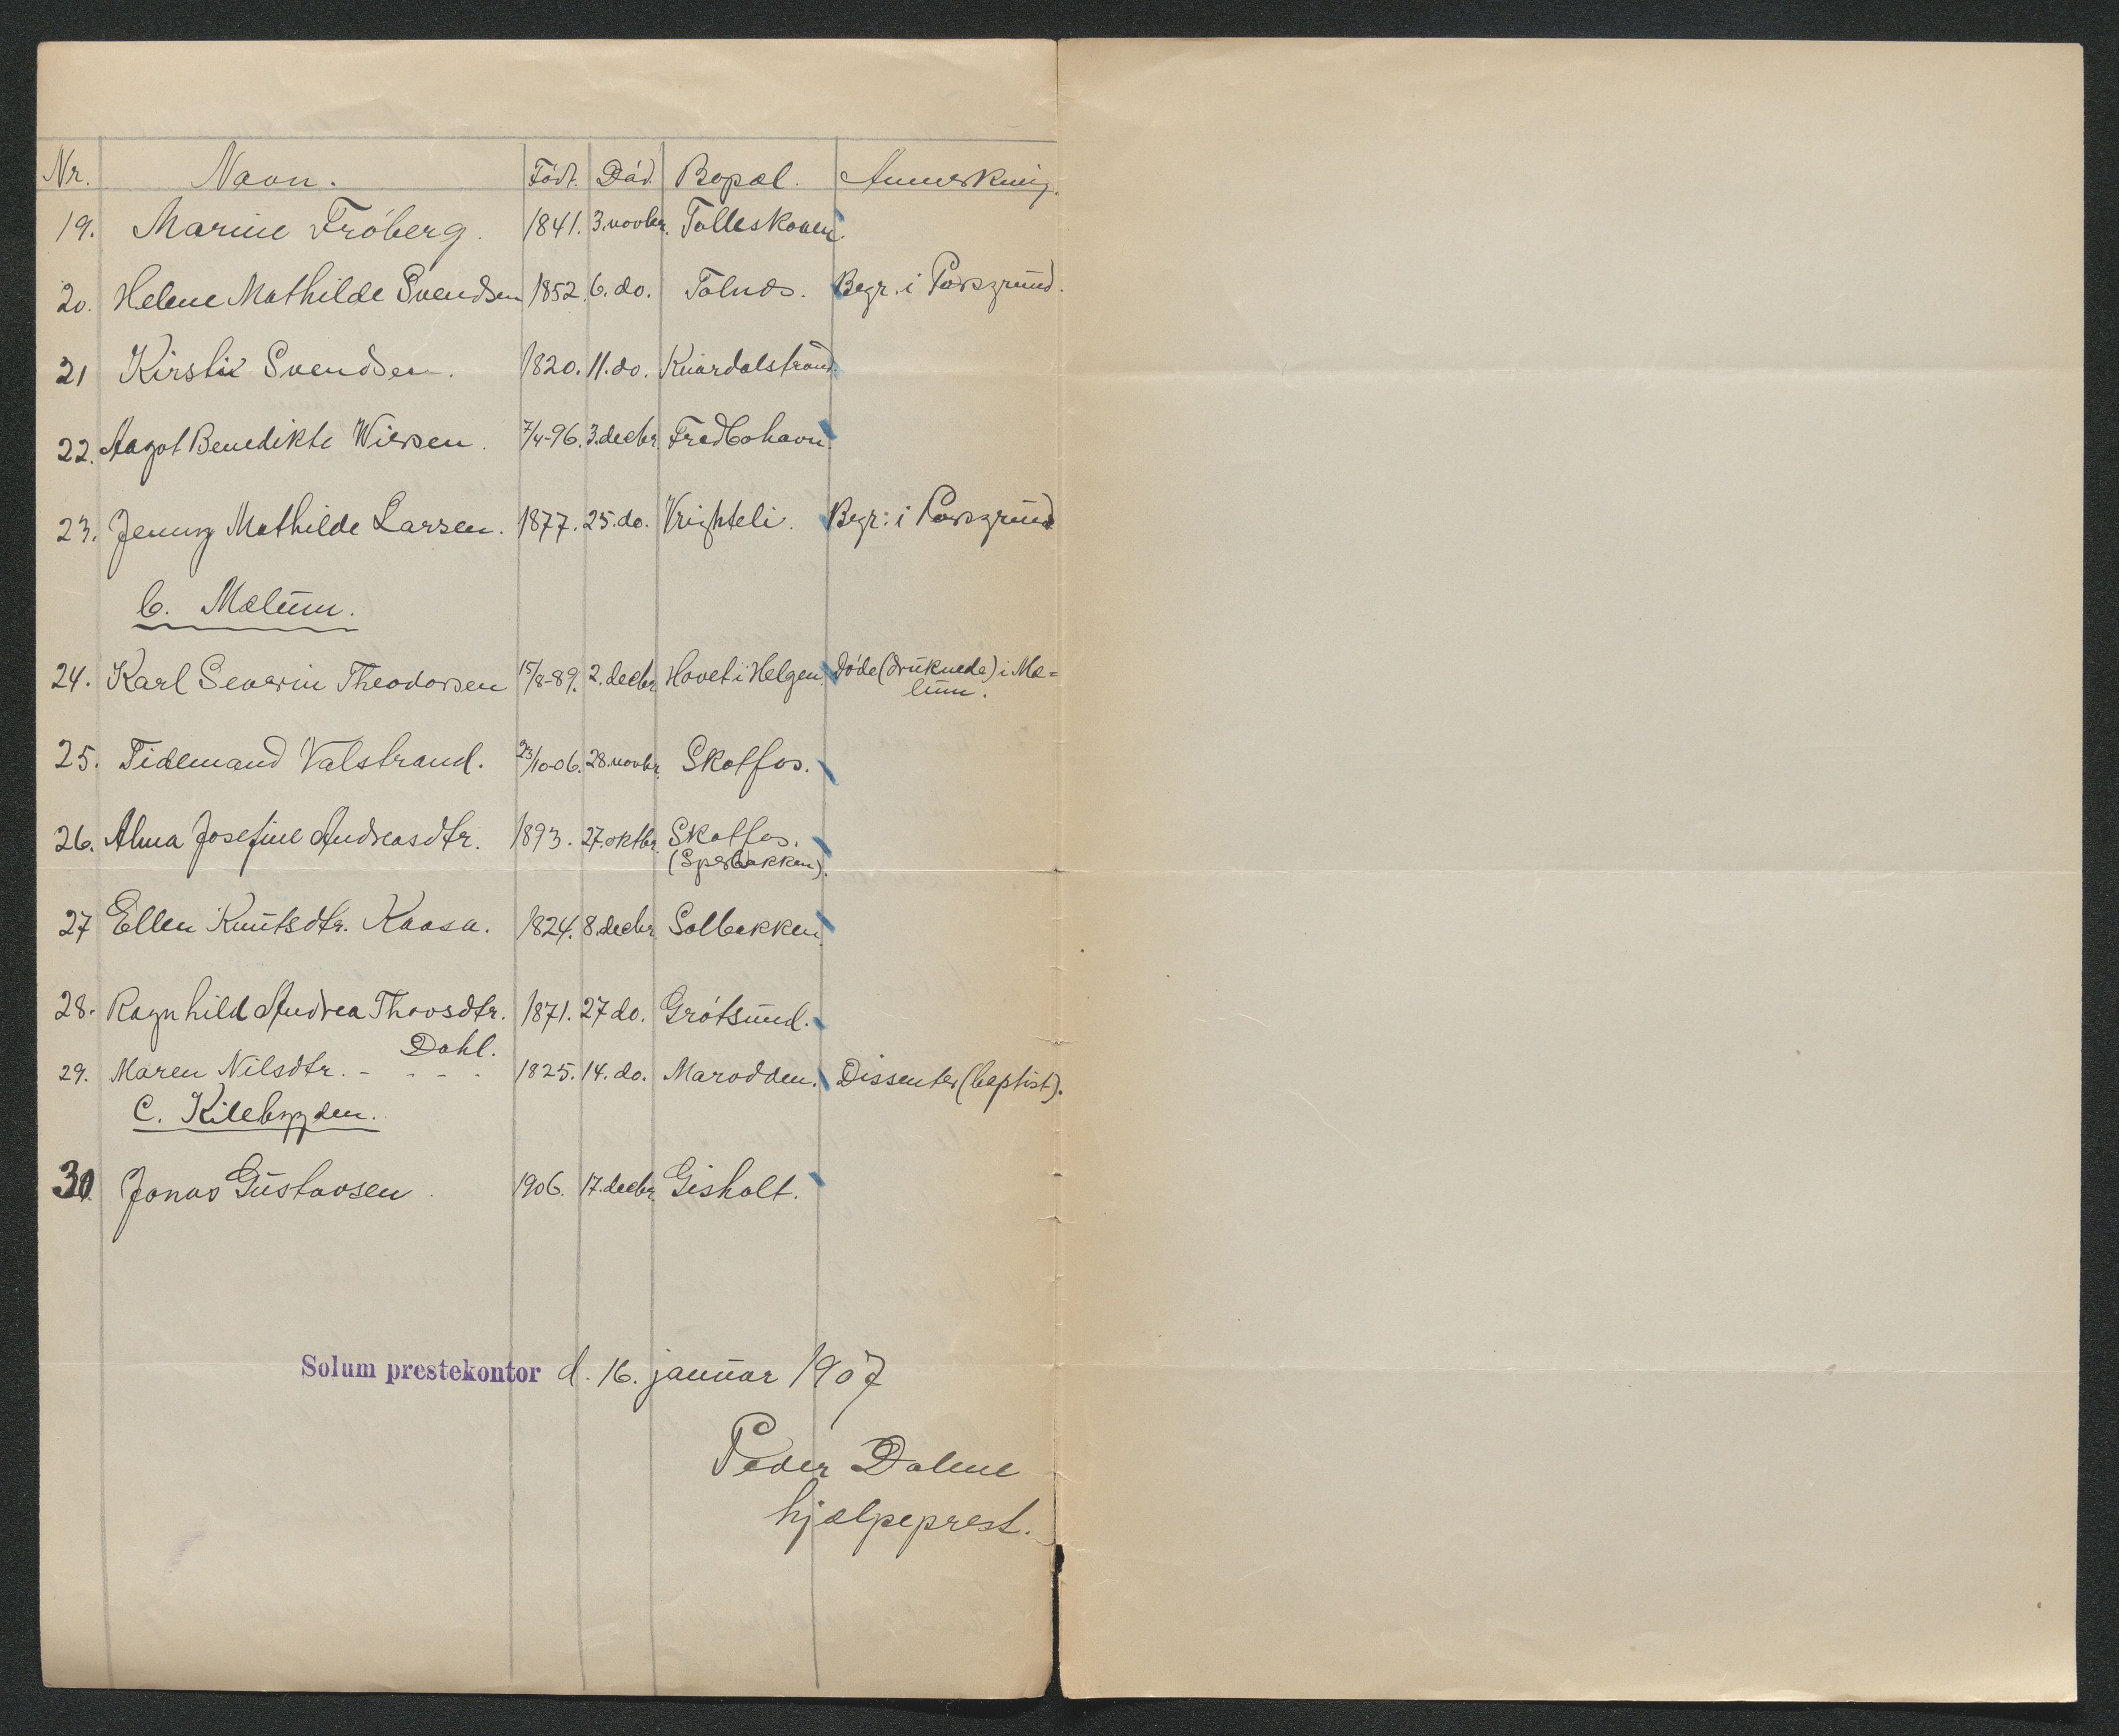 Nr. Navn. Født. Død. Bopæl. Anmerkning.
19. Marine Frøberg. 1841. 3. novbr. Tolleskoven.
20. Helene Mathilde Svendsen 1852. 6. do. Tolnæs. Begr. i Porsgrund.
21 Kirstie Svendsen. 1820. 11. do. Knardalstrand.
22. Aagot Benedikte Wiersen. 7/4-96. 3. decbr. Fredbohavn.
23. Jenny Mathilde Larsen. 1877. 25. do. Vrighteli. Begr. i Porsgrund
b. Mælum.
24. Karl Severin Theodorsen 15/8-89. 2. decbr. Hovet i Helgen. Døde (druknede) i Mæ=
lum.
25. Tidemand Valstrand. 23/10-06. 28. novbr. Skotfos.
26. Alma Josefine Andreasdtr. 1893. 27. oktbr. Skotfos.
(Sperbakken).
27 Ellen Knutsdtr. Kaasa. 1824. 8. decbr. Solbakken.
28. Ragnhild Andrea Thorsdtr. 1871. 27 do. Grøtsund.
Dahl.
29. Maren Nilsdtr. - - - - 1825. 14. do. Marodden. Dissenter (baptist).
C. Kilebygden.
30. Jonas Gustavsen. 1906. 17. decbr. Gisholt.
Solum prestekontor d. 16. januar 1907
Peder Dalene
hjælpeprest.